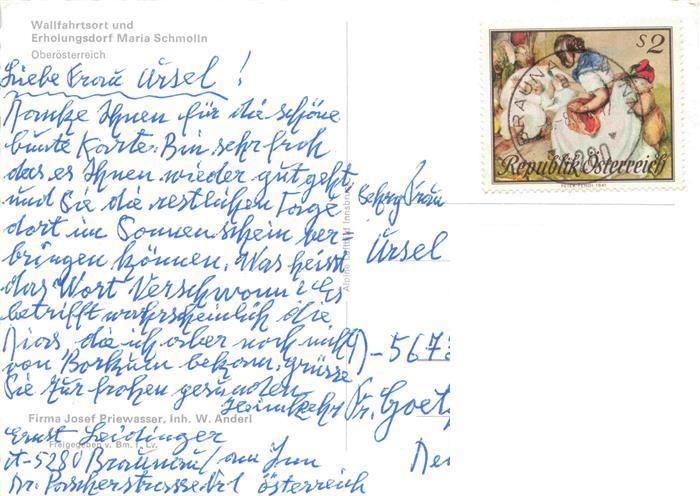 Wallfahrtsort und
Erholungsdorf Maria Schmolln
Oberösterreich
Liebe Frau Ursel!
Danke Ihnen für die schöne
bunte Karte. Bin sehr froh
das es Ihnen wieder gut geht
und Sie die restlichen Tage
dort im Sonnenschein ver-
bringen können. Was heisst
das Wort "Verschwonn"? Es
betrifft wahrscheinlich die
Dias, die ich aber noch nicht
von Borkum bekam, grüsse
Sie zur frohen gesunden
Heimkehr
Firma Josef Priewasser, Inh. W. Anderl
Freigegeben v. Bm. f. Lv.
Ernst Leidinger
A-5280 Braunau/am Inn
Dr. Porscherstrasse Nr 1 Österreich
Alpine Luftbild Innsbruck
Frau
Ursel
D-567
Fr. Goet
S2
BRAUNAU
Republik Österreich
PETER FENDI 1841